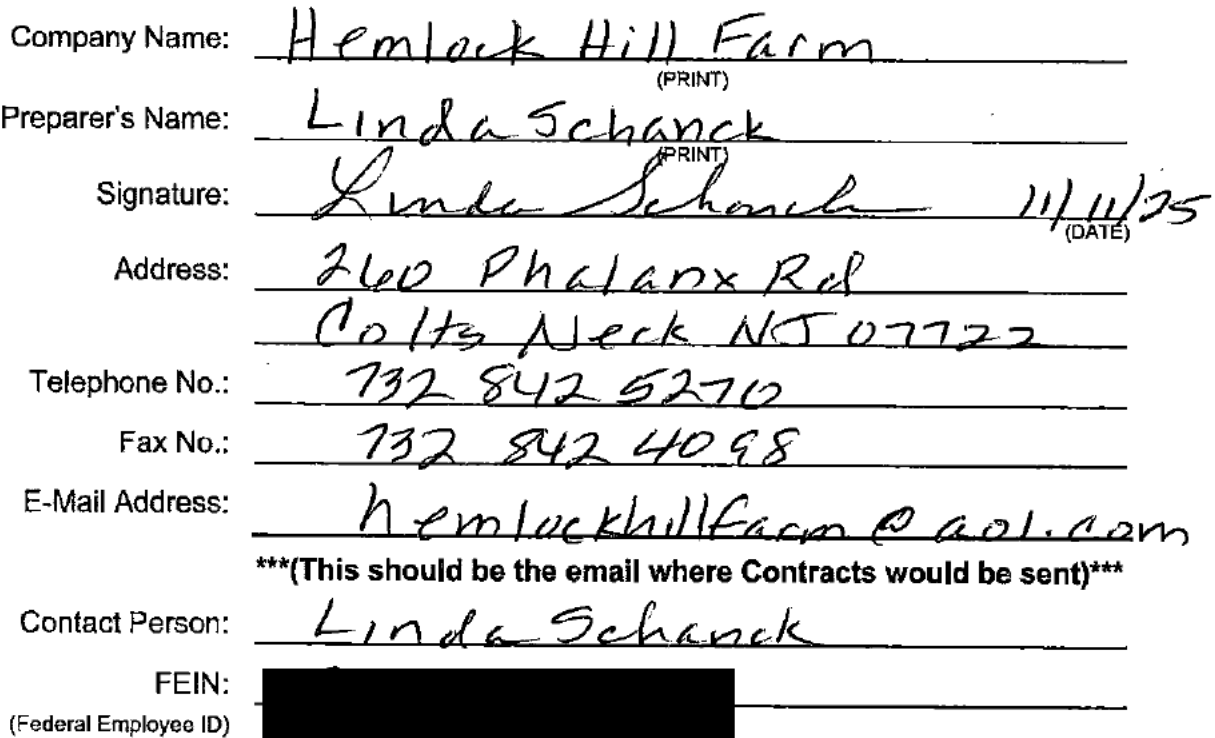 Company Name: Hemlock Hill Farm
(PRINT)
Preparer's Name: Linda Schanck
(PRINT)
Signature: Linda Schanck 11/11/25
(DATE)
Address: 260 Phalanx Rd
Colts Neck NJ 07722
Telephone No.: 732 842 5270
Fax No.: 732 842 4098
E-Mail Address: hemlockhillfarm@aol.com
***(This should be the email where Contracts would be sent)***
Contact Person: Linda Schanck
FEIN:
(Federal Employee ID)